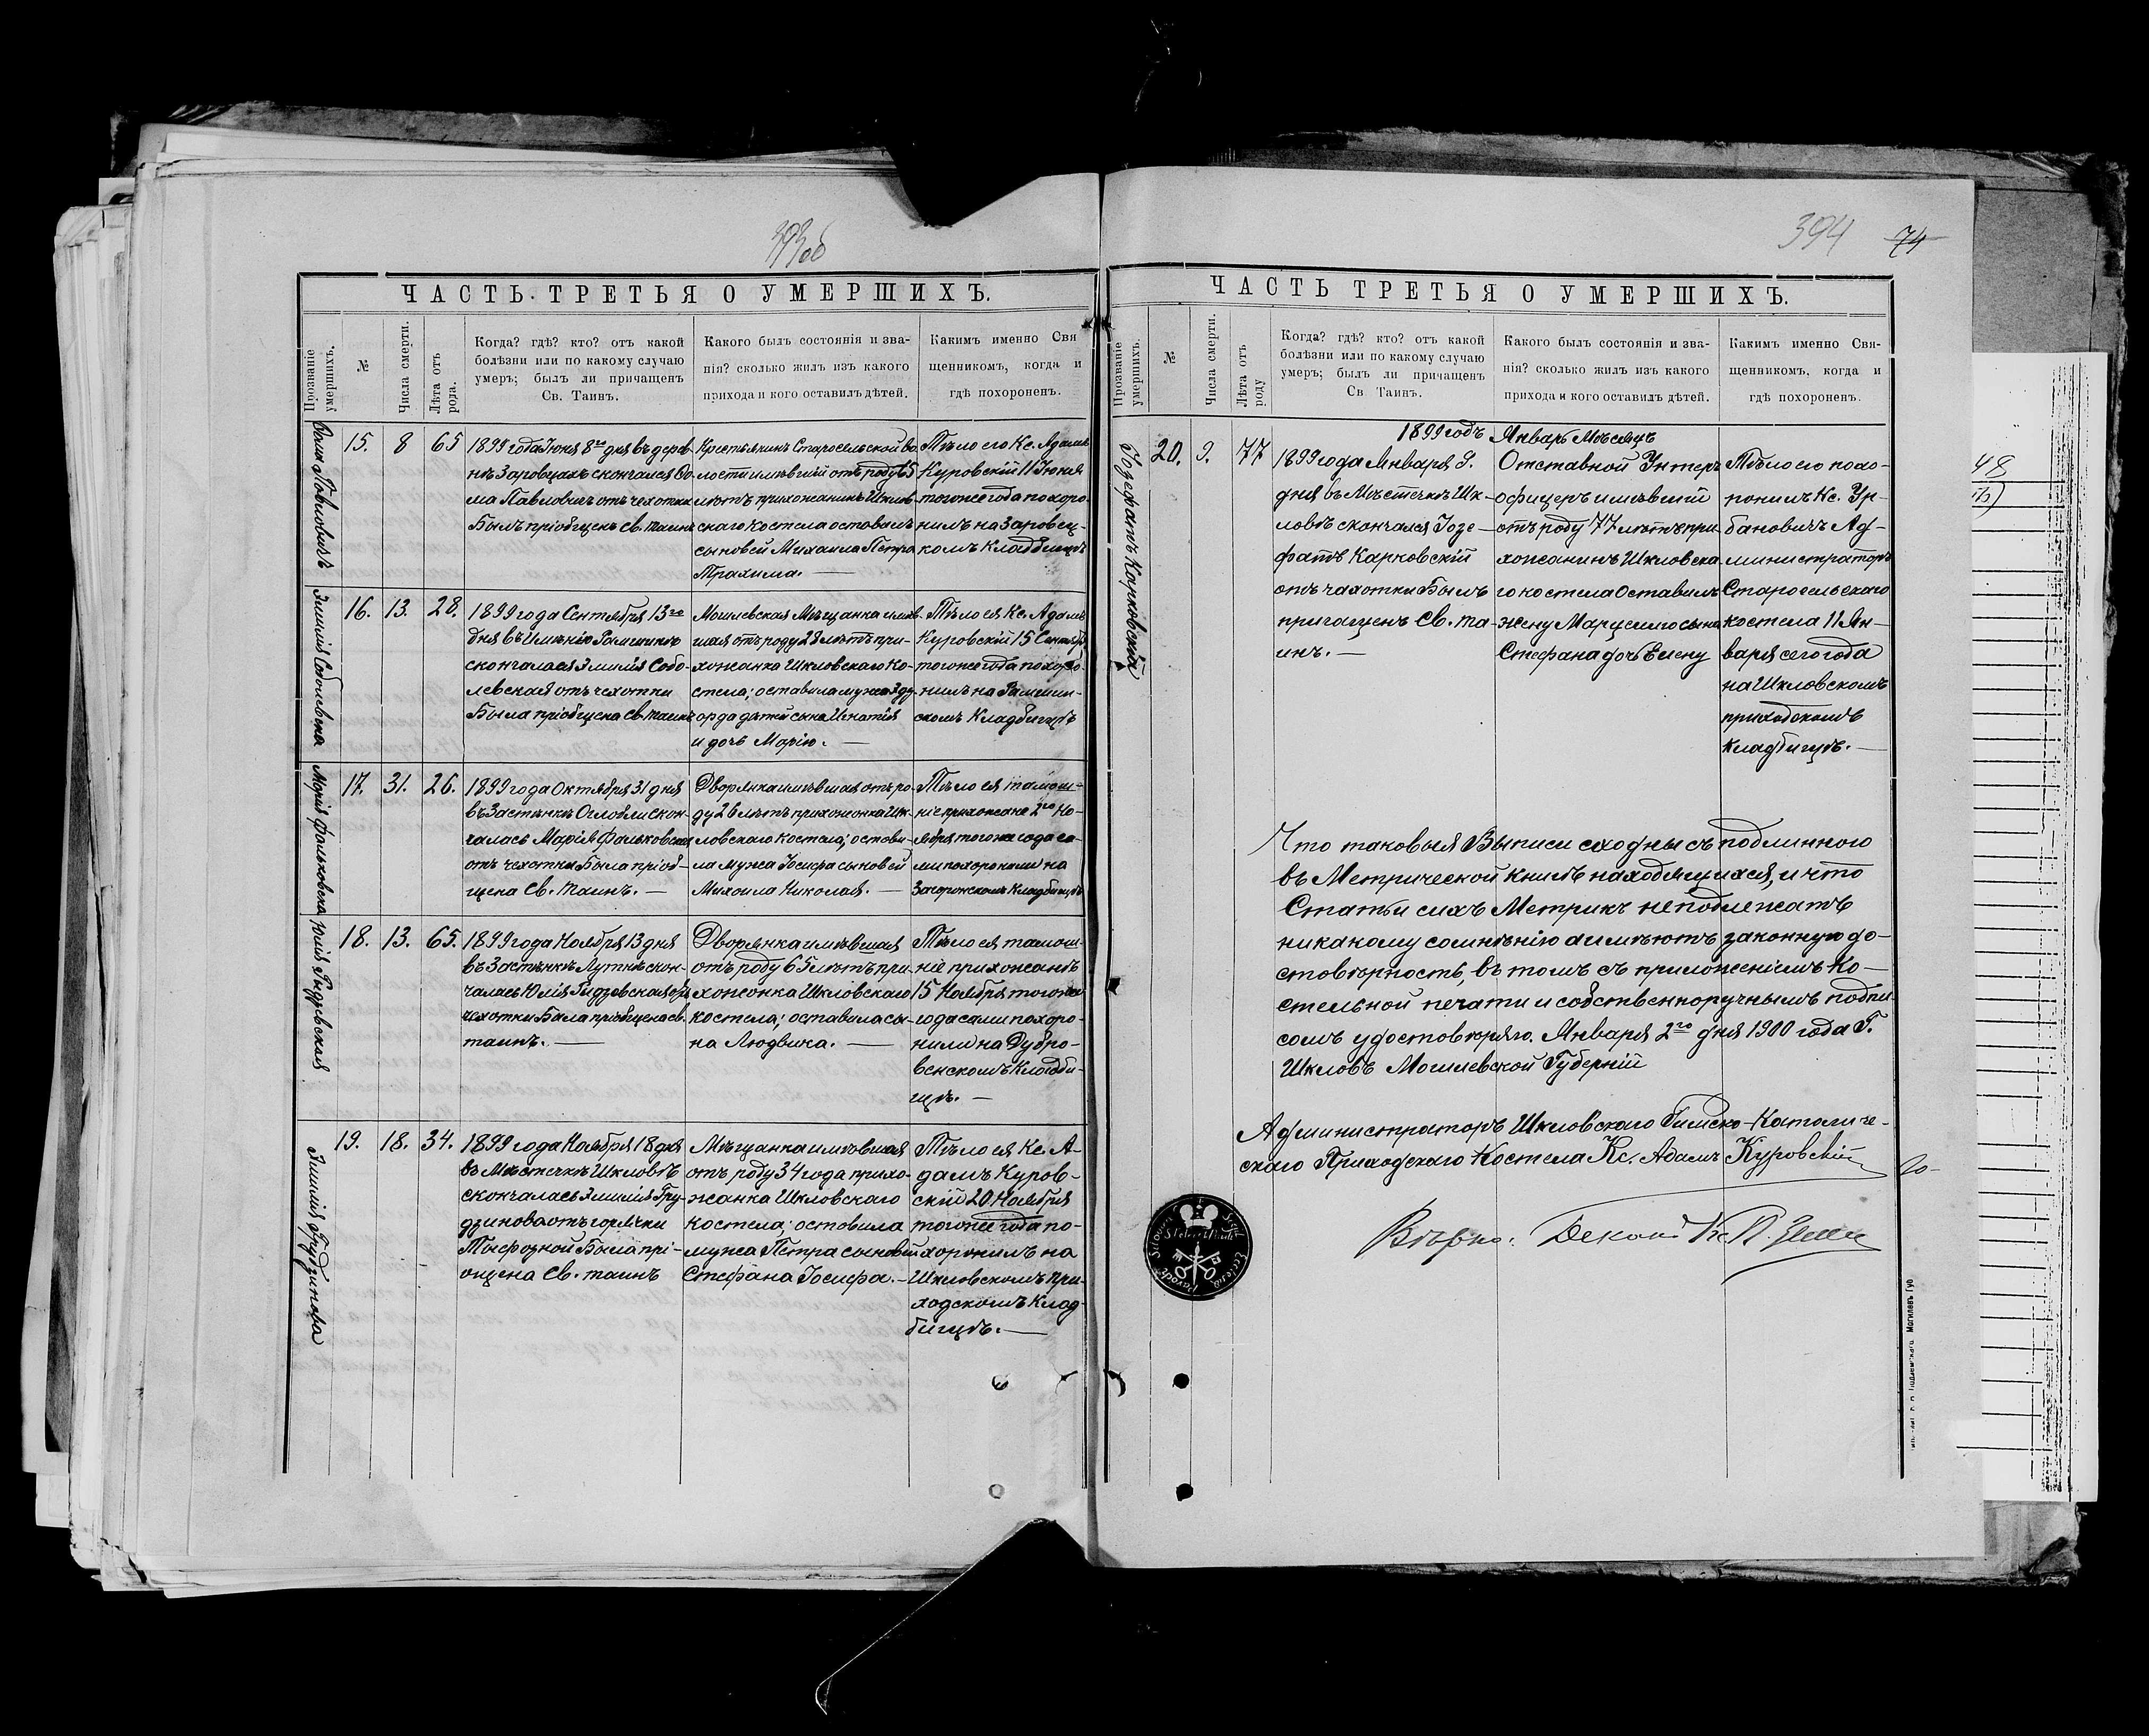 393об
ЧАСТЬ ТРЕТЬЯ О УМЕРШИХЪ.
Прозваніе умершихъ.
№
Числа смерти.
Лѣта отъ рода.
Когда? гдѣ? кто? отъ какой
болѣзни или по какому случаю
умеръ; былъ ли причащенъ
Св. Таинъ.
Какого былъ состоянія и зва-
нія? сколько жилъ изъ какого
прихода и кого оставилъ дѣтей.
Какимъ именно Свя
щенникомъ, когда и
гдѣ похороненъ.
Ѳома Павловичъ
15.
8
65
1899 года Іюня 8го дня въ дерев-
нѣ Заровцахъ скончался Ѳо-
ма Павловичъ отъ чехотки
Былъ пріобщенъ Св. таинъ
Крестьянинъ Старосельской во-
лости имѣвшій отъ роду 65
лѣтъ прихожанинъ Шклов-
скаго костела оставилъ
сыновей Михаила Петра
Трахима. —
Тѣло его Кс. Адамъ
Куровскій 11 Іюня
тогоже года похоро-
нилъ на Заровец-
комъ Кладбищѣ
Эмилія Соболевска
16.
13.
28.
1899 года Сентября 13го
дня въ Имѣніе
скончалася Эмилія Собо-
левская отъ чехотки
Была пріобщена Св. таинъ
Могилевская Мѣщанка имѣв-
шая отъ роду 28 лѣтъ при-
хожанка Шкловскаго Ко-
стела; оставила мужа Эду-
орда дѣтей сына Игнатія
и дочь Марію. —
Тѣло ея Кс. Адамъ
Куровскій 15 Сентября
тогоже года похоро-
нилъ на
скомъ Кладбищѣ
Марія Фальковска
17.
31.
26.
1899 года Октября 31 дня
въ Застѣнкѣ Оглобли скон-
чалась Марія Фальковская
отъ чехотки Была пріоб-
щена Св. таинъ. —
Дворянка имѣвшая отъ ро-
ду 26 лѣтъ прихожонка Шк-
ловскаго костела; остави-
ла мужа Іосифа сыновей
Михаила Николая. —
Тѣло ея тамош-
ніе прихожане 2го Но-
ября тогоже года са-
ми похоронили на
Загорожскомъ Кладбищѣ
Юлія Гидзевская
18.
13.
65.
1899 года Ноября 13 дня
въ Застѣнкѣ Лутнѣ скон-
чалась Юлія Гидзевская отъ
чехотки Была пріобщена Св.
таинъ. —
Дворянка имѣвшая
отъ роду 65 лѣтъ при-
хожонка Шкловскаго
костела; оставила сы-
на Людвика. —
Тѣло ея тамош-
ніе прихожанѣ
15 Ноября тогоже
года сами похоро-
нили на Дубро-
венскомъ Кладби-
щѣ. —
Эмилія Грудзинова
19.
18.
34.
1899 года Ноября 18 дня
въ Мѣстечкѣ Шкловѣ
скончалась Эмилія Гру-
дзинова отъ горячки
Тыфозной Была прі-
ощена Св. таинъ
Мѣщанка имѣвшая
отъ роду 34 года прихо-
жанка Шкловскаго
костела; оставила
мужа Петра сыновей
Стефана Іосифа. —
Тѣло ея Кс. А-
дамъ Куров-
скій 20 Ноября
тогоже года по-
хоронилъ на
Шкловскомъ при-
ходскомъ Клад-
бищѣ. —
394
74
ЧАСТЬ ТРЕТЬЯ О УМЕРШИХЪ.
Прозваніе умершихъ.
№
Числа смерти.
Лѣта отъ роду
Когда? гдѣ? кто? отъ какой
болѣзни или по какому случаю
умеръ; былъ ли причащенъ
Св Таинъ.
Какого былъ состоянія и зва-
нія? сколько жилъ изъ какого
прихода и кого оставилъ дѣтей.
Какимъ именно Свя-
щенникомъ, когда и
гдѣ похороненъ.
1899 годъ Январь Мѣсяцъ
Іозефатъ Карковскій
20.
9.
77
1899 года Января 9.
дня въ Мѣстечкѣ Шк-
ловѣ скончался Іозе-
фатъ Карковскій
отъ чахотки Былъ
пригощенъ Св. та-
инъ. —
Отставной Унтеръ
офицеръ имѣвшій
отъ роду 77 лѣтъ при-
хожанинъ Шкловска-
го костела Оставилъ
жену Марцеллю сына
Стефана дочь Елену
Тѣло его похо-
ронилъ Кс. Ур-
бановичъ Ад-
министраторъ
Старосельскаго
костела 11 Ян-
варя сего года
на Шкловскомъ
приходскомъ
кладбищѣ. —
Что таковыя Выписи сходны съ подлинного
въ Метрической книгѣ находящихся, и что
Статьи сихъ Метрикъ неподлежатъ
никакому сомнѣнію а имѣютъ законную до-
стовѣрность, въ томъ съ приложеніемъ Ко-
стельной печати и собственноручнымъ подпи-
сомъ удостовѣряю. Января 2го дня 1900 года Г.
Шкловъ Могилевской Губерніи
Администраторъ Шкловскаго Римско-Католиче-
скаго Приходскаго Костела Кс. Адамъ Куровскій
Вѣрно: Декан Кс. П.
48